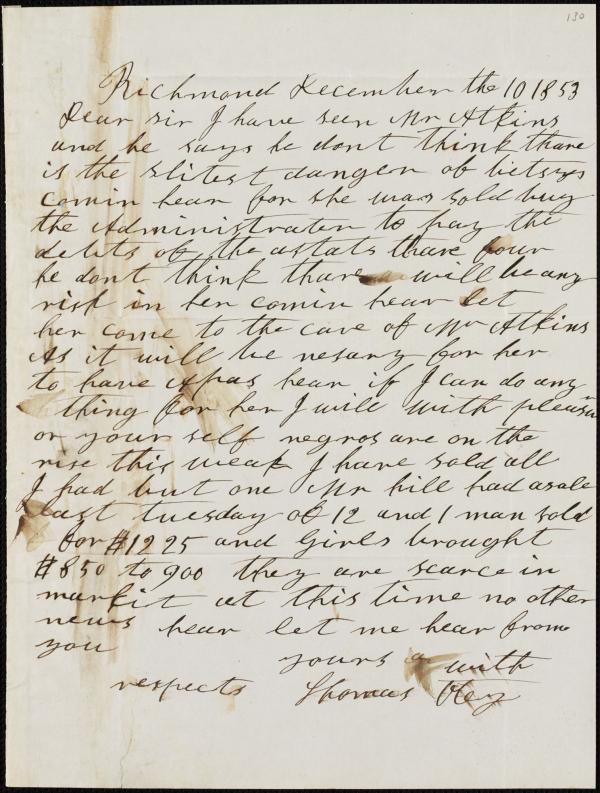 130
Richmond December the 10 1853
Dear sir I have seen Mr Atkins
and he says he dont think thare
is the slitest danger of betsys
comin hear for she was sold buy
the Administrater to pay the
debts of the astats thare four
he dont think thare will be any
risk in her comin hear let
her come to the care of Mr Atkins
As it will be nesary for her
to have Apas hear if I can do any
thing for her I will with pleasure
or your self negros are on the
rise this weak I have sold all
I had but one Mr hill had a sale
last tuesday of 12 and 1 man sold
for $1225 and Girls brought
$850 to 900 they are scarce in
markit at this time no other
news hear let me hear from
you
yours with
respects Thomas